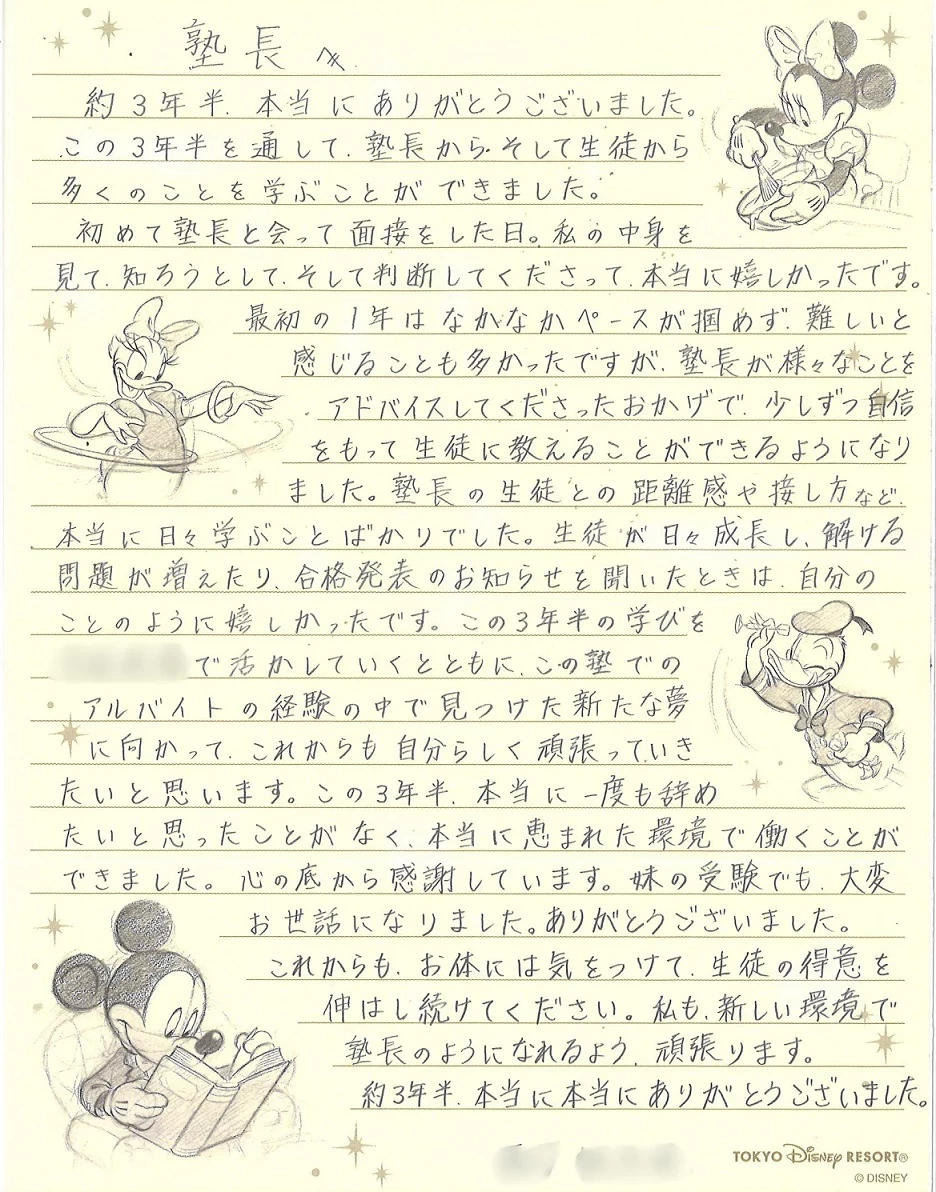 塾長へ
約3年半、本当にありがとうございました。
この3年半を通して、塾長から、そして生徒から
多くのことを学ぶことができました。
初めて塾長と会って面接をした日。私の中身を
見て、知ろうとして、そして判断してくださって、本当に嬉しかったです。
最初の1年はなかなかペースが掴めず、難しいと
感じることも多かったですが、塾長が様々なことを
アドバイスしてくださったおかげで、少しずつ自信
をもって生徒に教えることができるようになり
ました。塾長の生徒との距離感や接し方など、
本当に日々学ぶことばかりでした。生徒が日々成長し、解ける
問題が増えたり、合格発表のお知らせを聞いたときは、自分の
ことのように嬉しかったです。この3年半の学びを
で活かしていくとともに、この塾での
アルバイトの経験の中で見つけた新たな夢
に向かって、これからも自分らしく頑張っていき
たいと思います。この3年半、本当に一度も辞め
たいと思ったことがなく、本当に恵まれた環境で働くことが
できました。心の底から感謝しています。妹の受験でも、大変
お世話になりました。ありがとうございました。
これからも、お体には気をつけて、生徒の得意を
伸ばし続けてください。私も、新しい環境で
塾長のようになれるよう、頑張ります。
約3年半、本当に本当にありがとうございました。
TOKYO Disney RESORT®
© DISNEY